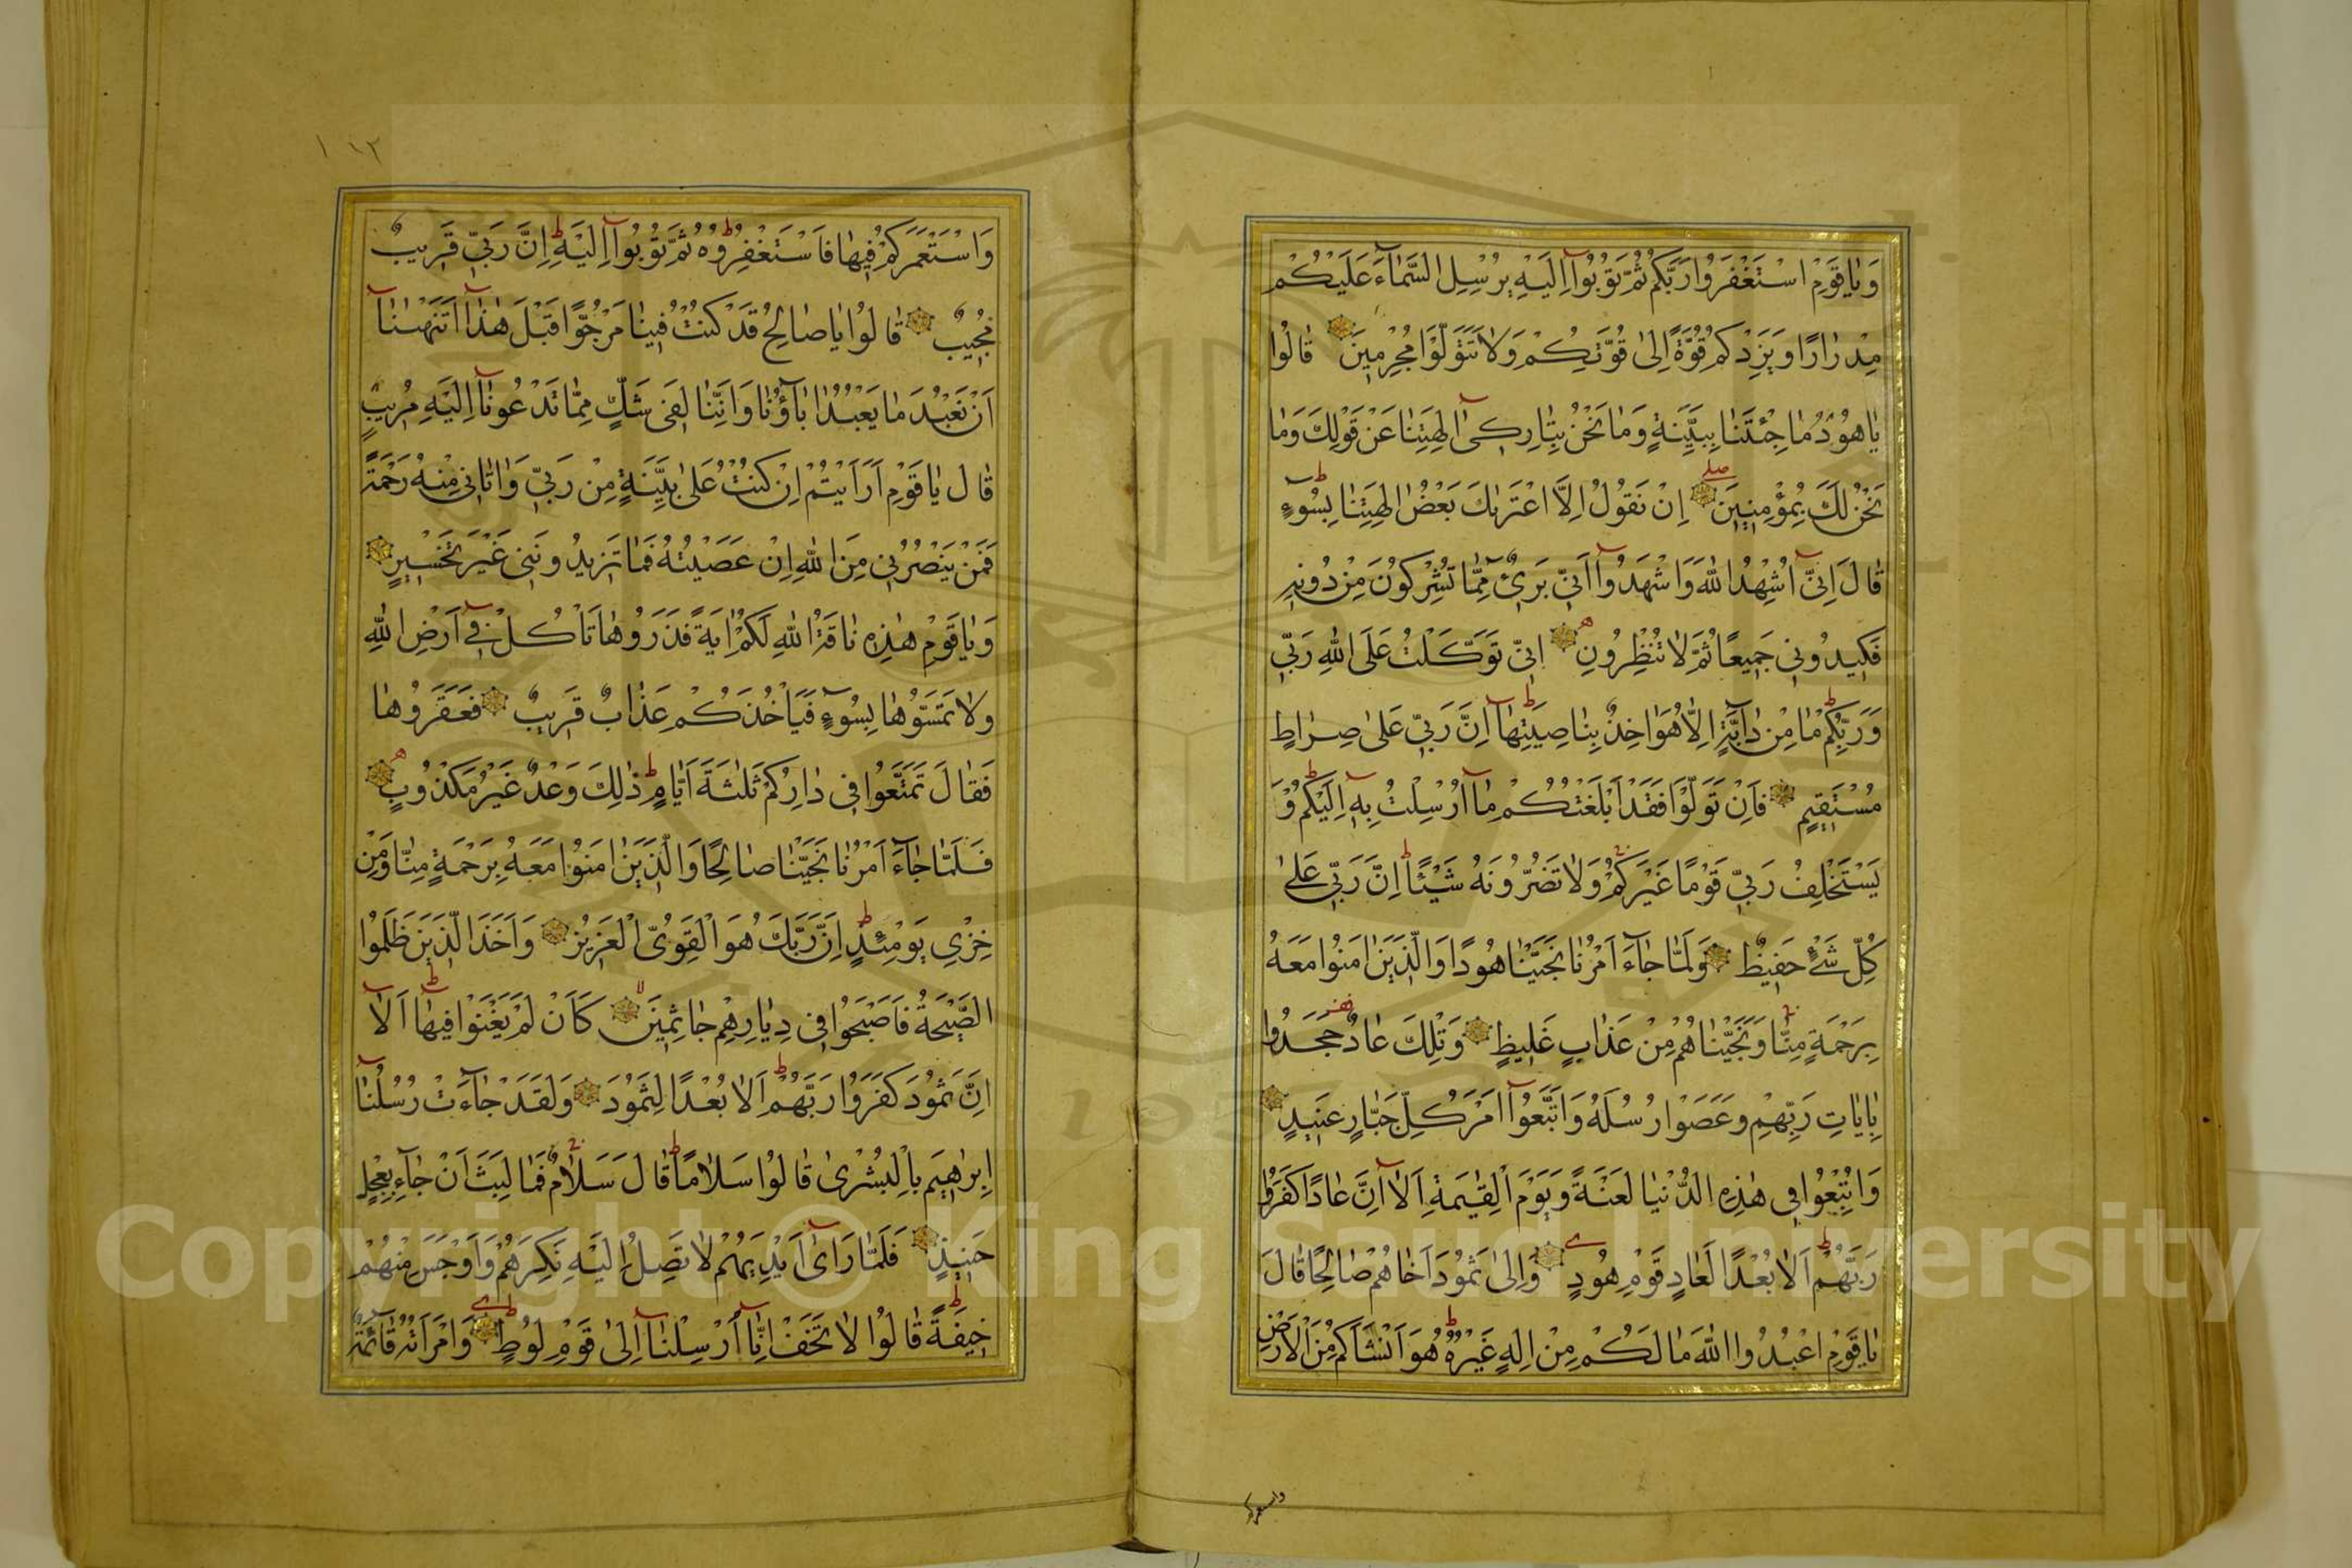 وَيَاقَوْمِ اسْتَغْفِرُوا رَبَّكُمْ ثُمَّ تُوبُوآ اِلَيْهِ يُرْسِلِ السَّمَآءَ عَلَيْكُمْ
مِدْرَارًا وَيَزِدْكُمْ قُوَّةً اِلىٰ قُوَّتِكُمْ وَلَا تَتَوَلَّوْا مُجْرِمِينَ قَالُوا
يَاهُودُ مَا جِئْتَنَا بِبَيِّنَةٍ وَمَا نَحْنُ بِتَارِكِىٓ اٰلِهَتِنَا عَنْ قَوْلِكَ وَمَا
نَحْنُ لَكَ بِمُؤْمِنِينَ اِنْ نَقُولُ اِلَّا اعْتَرٰيكَ بَعْضُ اٰلِهَتِنَا بِسُوٓءٍ
قَالَ اِنِّىٓ اُشْهِدُ اللهَ وَاشْهَدُوآ اَنِّى بَرِىٓءٌ مِمَّا تُشْرِكُونَ مِنْ دُونِهِ
فَكِيدُونِى جَمِيعًا ثُمَّ لَا تُنْظِرُونِ اِنِّى تَوَكَّلْتُ عَلَى اللهِ رَبِّى
وَرَبِّكُمْ مَا مِنْ دَآبَّةٍ اِلَّا هُوَ اٰخِذٌ بِنَاصِيَتِهَا اِنَّ رَبِّى عَلىٰ صِرَاطٍ
مُسْتَقِيمٍ فَاِنْ تَوَلَّوْا فَقَدْ اَبْلَغْتُكُمْ مَآ اُرْسِلْتُ بِهِ اِلَيْكُمْ وَ
يَسْتَخْلِفُ رَبِّى قَوْمًا غَيْرَكُمْ وَلَا تَضُرُّونَهُ شَيْئًا اِنَّ رَبِّى عَلىٰ
كُلِّ شَىْءٍ حَفِيظٌ وَلَمَّا جَآءَ اَمْرُنَا نَجَّيْنَا هُودًا وَالَّذِينَ اٰمَنُوا مَعَهُ
بِرَحْمَةٍ مِنَّا وَنَجَّيْنَاهُمْ مِنْ عَذَابٍ غَلِيظٍ وَتِلْكَ عَادٌ جَحَدُوا
بِاٰيَاتِ رَبِّهِمْ وَعَصَوْا رُسُلَهُ وَاتَّبَعُوآ اَمْرَ كُلِّ جَبَّارٍ عَنِيدٍ
وَاُتْبِعُوا فِى هٰذِهِ الدُّنْيَا لَعْنَةً وَيَوْمَ الْقِيٰمَةِ اَلَآ اِنَّ عَادًا كَفَرُوا
رَبَّهُمْ اَلَا بُعْدًا لِعَادٍ قَوْمِ هُودٍ وَاِلىٰ ثَمُودَ اَخَاهُمْ صَالِحًا قَالَ
يَاقَوْمِ اعْبُدُوا اللهَ مَا لَكُمْ مِنْ اِلٰهٍ غَيْرُهُ هُوَ اَنْشَاَكُمْ مِنَ الْاَرْضِ
واستعمركم
١٦٢
وَاسْتَعْمَرَكُمْ فِيهَا فَاسْتَغْفِرُوهُ ثُمَّ تُوبُوآ اِلَيْهِ اِنَّ رَبِّى قَرِيبٌ
مُجِيبٌ قَالُوا يَاصَالِحُ قَدْ كُنْتَ فِينَا مَرْجُوًّا قَبْلَ هٰذَآ اَتَنْهٰينَآ
اَنْ نَعْبُدَ مَا يَعْبُدُ اٰبَآؤُنَا وَاِنَّنَا لَفِى شَكٍّ مِمَّا تَدْعُونَآ اِلَيْهِ مُرِيبٍ
قَالَ يَاقَوْمِ اَرَاَيْتُمْ اِنْ كُنْتُ عَلىٰ بَيِّنَةٍ مِنْ رَبِّى وَاٰتَانِى مِنْهُ رَحْمَةً
فَمَنْ يَنْصُرُنِى مِنَ اللهِ اِنْ عَصَيْتُهُ فَمَا تَزِيدُونَنِى غَيْرَ تَخْسِيرٍ
وَيَاقَوْمِ هٰذِهِ نَاقَةُ اللهِ لَكُمْ اٰيَةً فَذَرُوهَا تَاْكُلْ فِىٓ اَرْضِ اللهِ
وَلَا تَمَسُّوهَا بِسُوٓءٍ فَيَاْخُذَكُمْ عَذَابٌ قَرِيبٌ فَعَقَرُوهَا
فَقَالَ تَمَتَّعُوا فِى دَارِكُمْ ثَلٰثَةَ اَيَّامٍ ذٰلِكَ وَعْدٌ غَيْرُ مَكْذُوبٍ
فَلَمَّا جَآءَ اَمْرُنَا نَجَّيْنَا صَالِحًا وَالَّذِينَ اٰمَنُوا مَعَهُ بِرَحْمَةٍ مِنَّا وَمِنْ
خِزْىِ يَوْمِئِذٍ اِنَّ رَبَّكَ هُوَ الْقَوِىُّ الْعَزِيزُ وَاَخَذَ الَّذِينَ ظَلَمُوا
الصَّيْحَةُ فَاَصْبَحُوا فِى دِيَارِهِمْ جَاثِمِينَ كَاَنْ لَمْ يَغْنَوْا فِيهَا اَلَآ
اِنَّ ثَمُودَ كَفَرُوا رَبَّهُمْ اَلَا بُعْدًا لِثَمُودَ وَلَقَدْ جَآءَتْ رُسُلُنَآ
اِبْرٰهِيمَ بِالْبُشْرىٰ قَالُوا سَلَامًا قَالَ سَلَامٌ فَمَا لَبِثَ اَنْ جَآءَ بِعِجْلٍ
حَنِيذٍ فَلَمَّا رَآىٰ اَيْدِيَهُمْ لَا تَصِلُ اِلَيْهِ نَكِرَهُمْ وَاَوْجَسَ مِنْهُمْ
خِيفَةً قَالُوا لَا تَخَفْ اِنَّآ اُرْسِلْنَآ اِلىٰ قَوْمِ لُوطٍ وَامْرَاَتُهُ قَآئِمَةٌ
Copyright © King Saud University